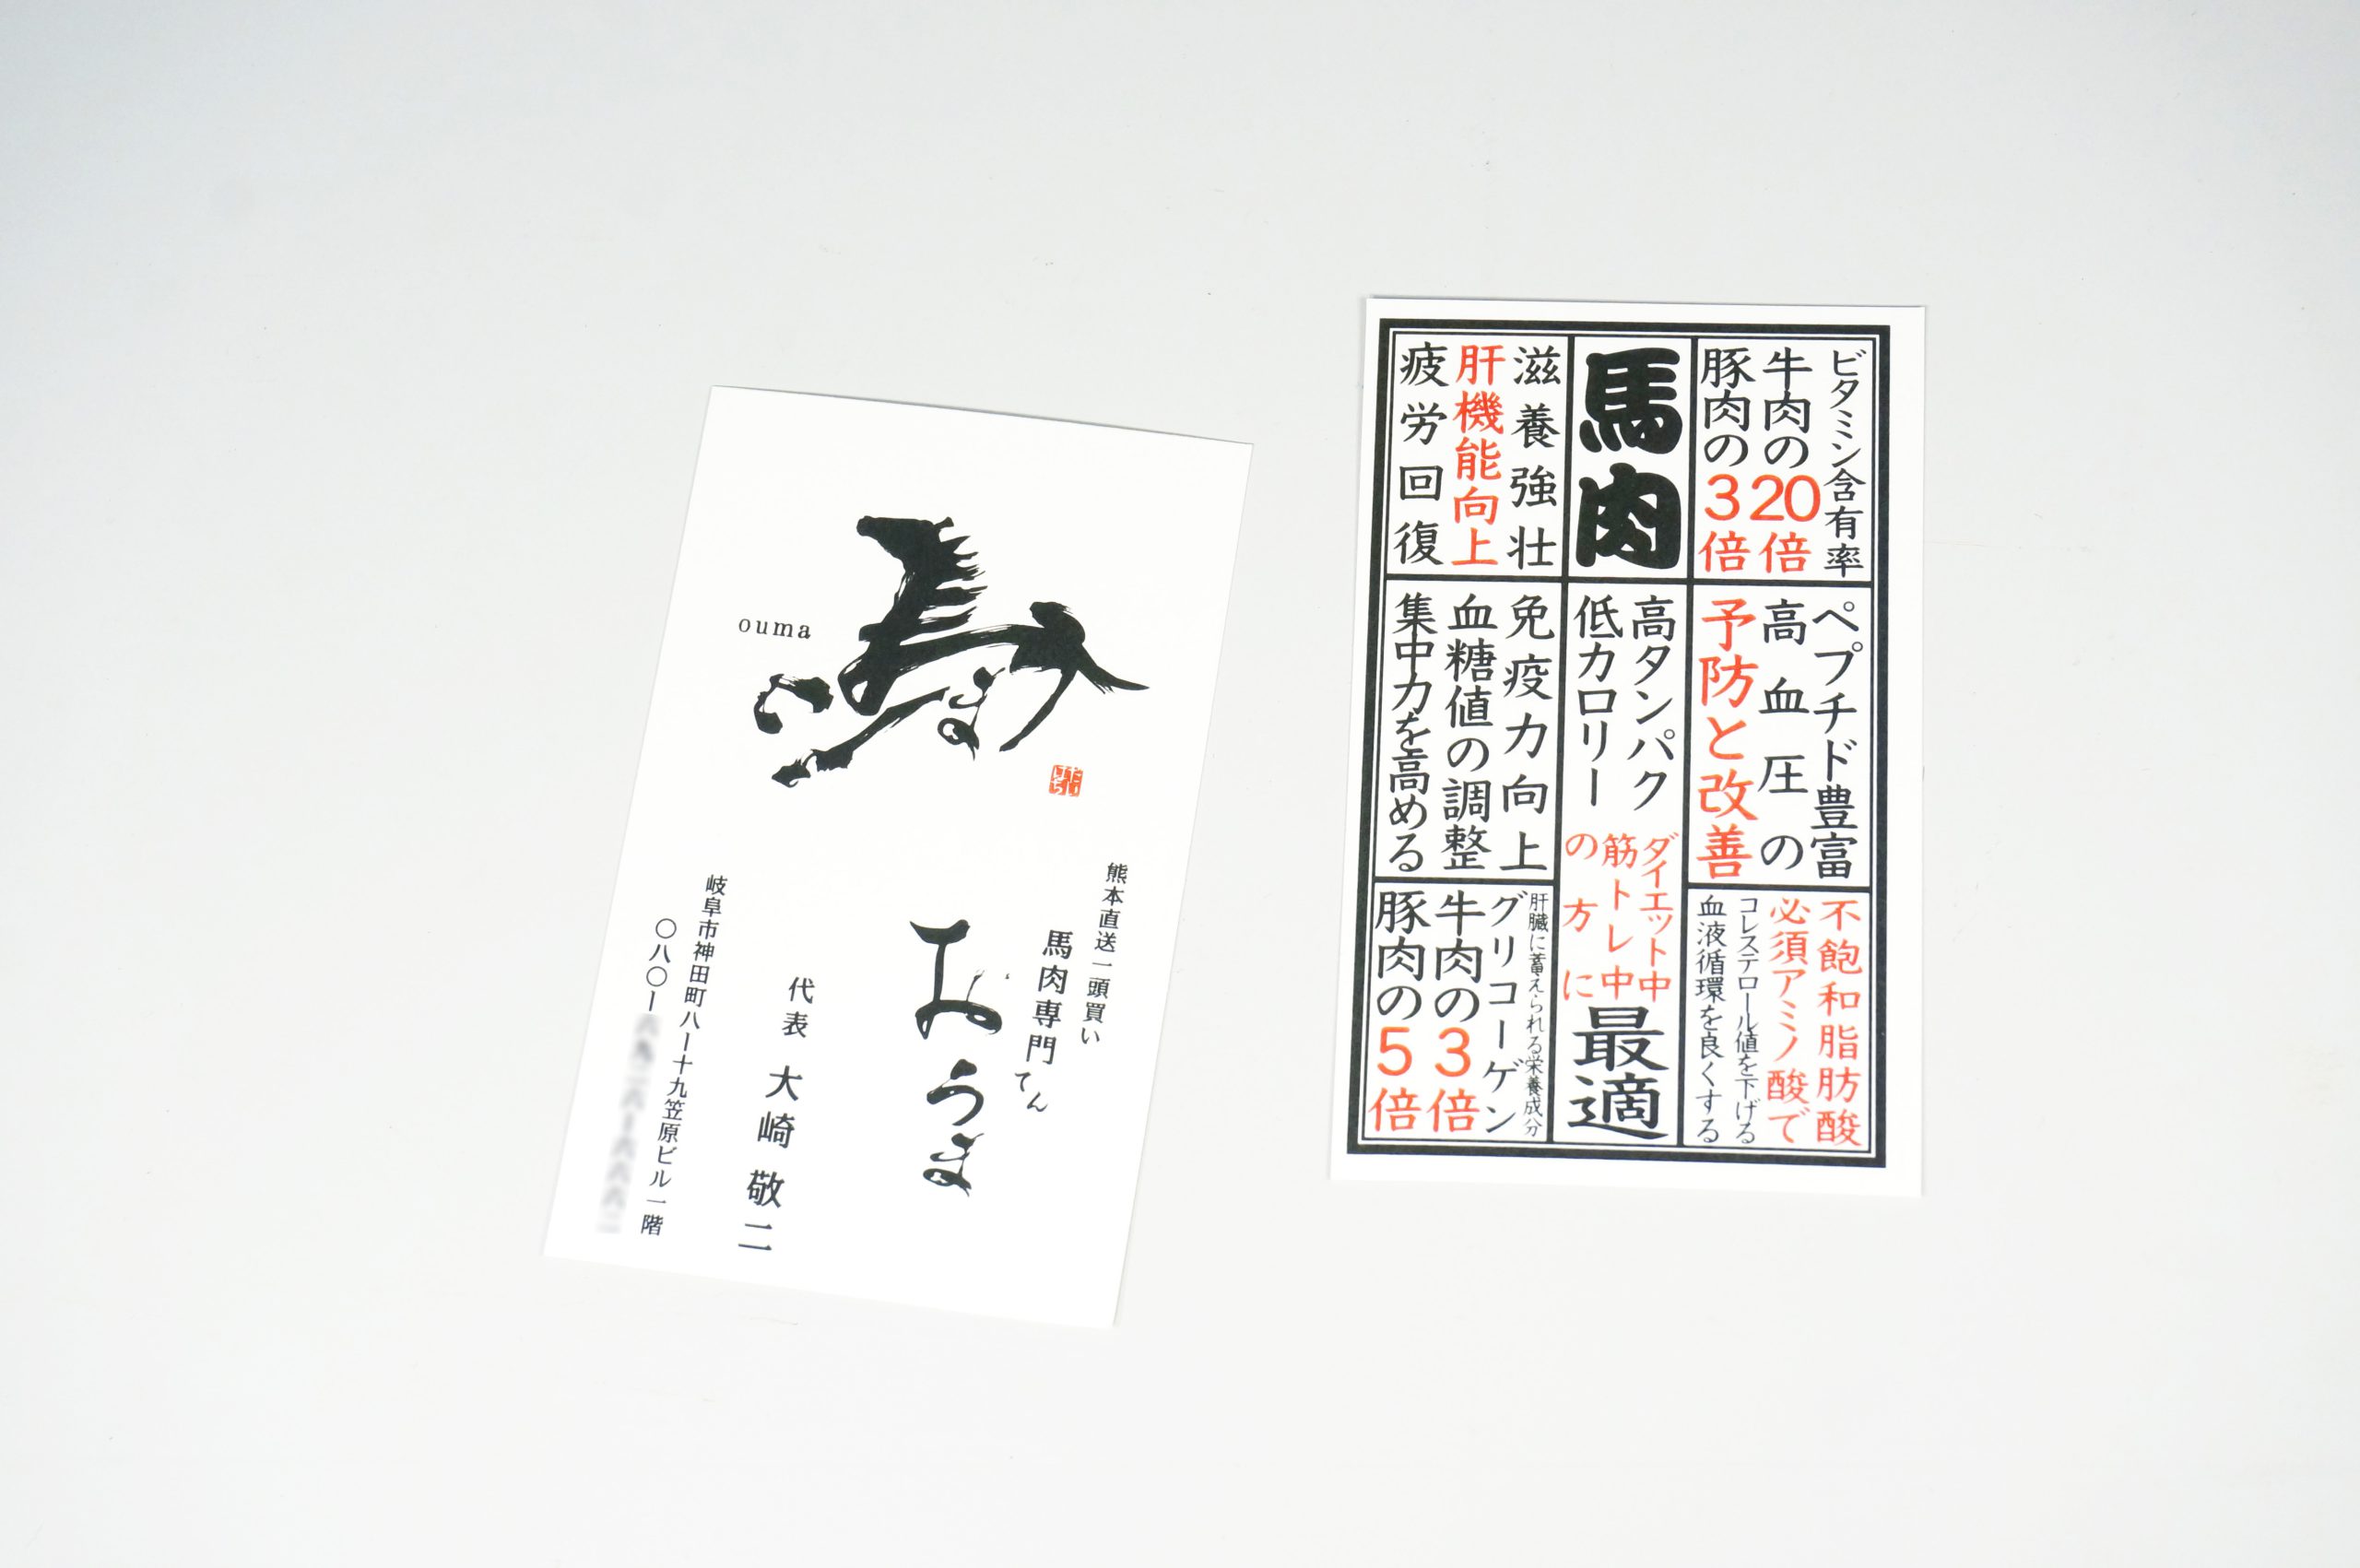 ouma
熊本直送一頭買い
馬肉専門てん
おうま
代表 大崎 敬二
岐阜市神田町八ー十九笠原ビル一階
〇八〇ー
ビタミン含有率
牛肉の20倍
豚肉の3倍
馬肉
滋養強壮
肝機能向上
疲労回復
ペプチド豊富
高血圧の
予防と改善
高タンパク
低カロリー
ダイエット中
筋トレ中
の方に
最適
免疫力向上
血糖値の調整
集中力を高める
不飽和脂肪酸
必須アミノ酸で
コレステロール値を下げる
血液循環を良くする
肝臓に蓄えられる栄養成分
グリコーゲン
牛肉の3倍
豚肉の5倍